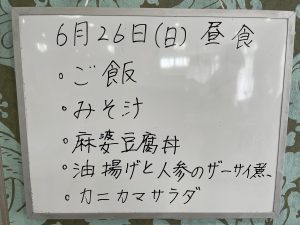 6月26日(日) 昼食
・ご飯
・みそ汁
・麻婆豆腐丼
・油揚げと人参のザーサイ煮
・カニカマサラダ